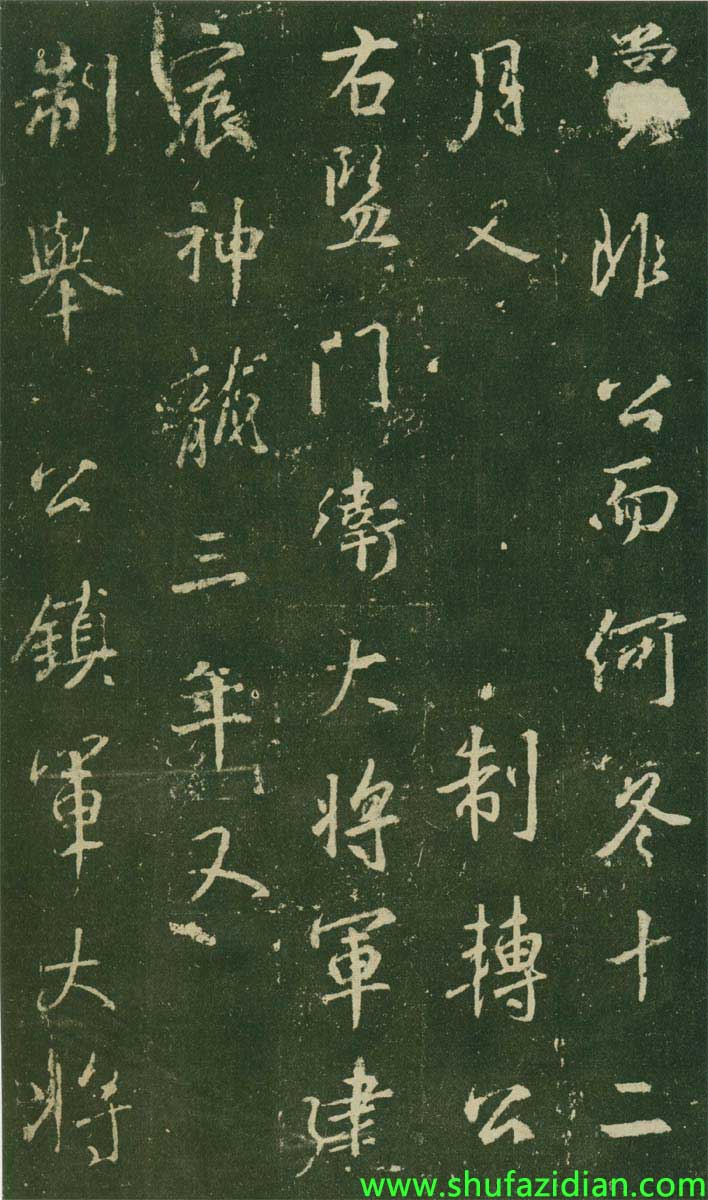 賞非公而何冬十二
月又 制轉公
右監門衛大將軍建
宸神龍三年又
制舉公鎮軍大將
www.shufazidian.com